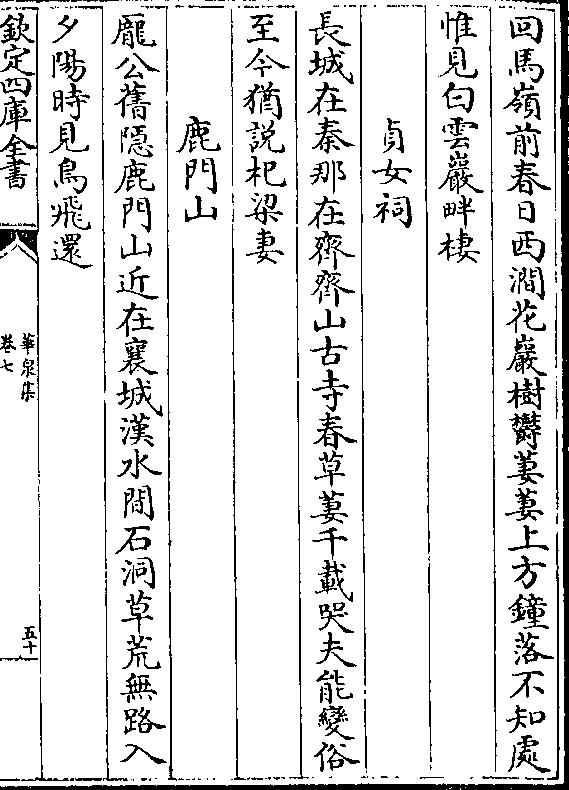 回馬嶺前春日西澗花巖樹欝萋萋上方鐘落不知處
惟見白雲巖畔棲
貞女祠
長城在秦那在齊齊山古寺春草萋千載哭夫能變俗
至今猶説杞梁妻
鹿門山
龎公舊隠鹿門山近在襄城漢水間石洞草荒無路入
夕陽時見鳥飛還
欽定四庫全書
華泉集
卷七
五十